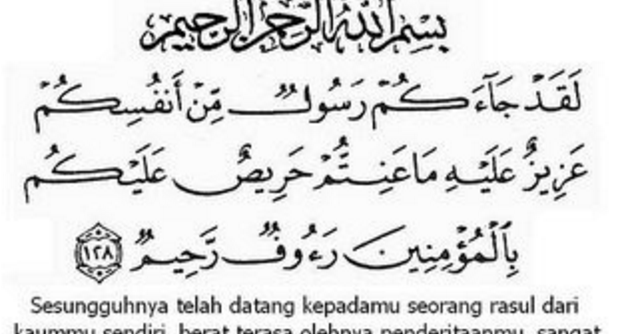 بِسْمِ ٱللَّهِ ٱلرَّحْمَٰنِ ٱلرَّحِيمِ
لَقَدْ جَآءَكُمْ رَسُولٌ مِّنْ أَنفُسِكُمْ
عَزِيزٌ عَلَيْهِ مَا عَنِتُّمْ حَرِيصٌ عَلَيْكُم
بِٱلْمُؤْمِنِينَ رَءُوفٌ رَّحِيمٌ ١٢٨
Sesungguhnya telah datang kepadamu seorang rasul dari
kaummu sendiri, berat terasa olehnya penderitaanmu, sangat